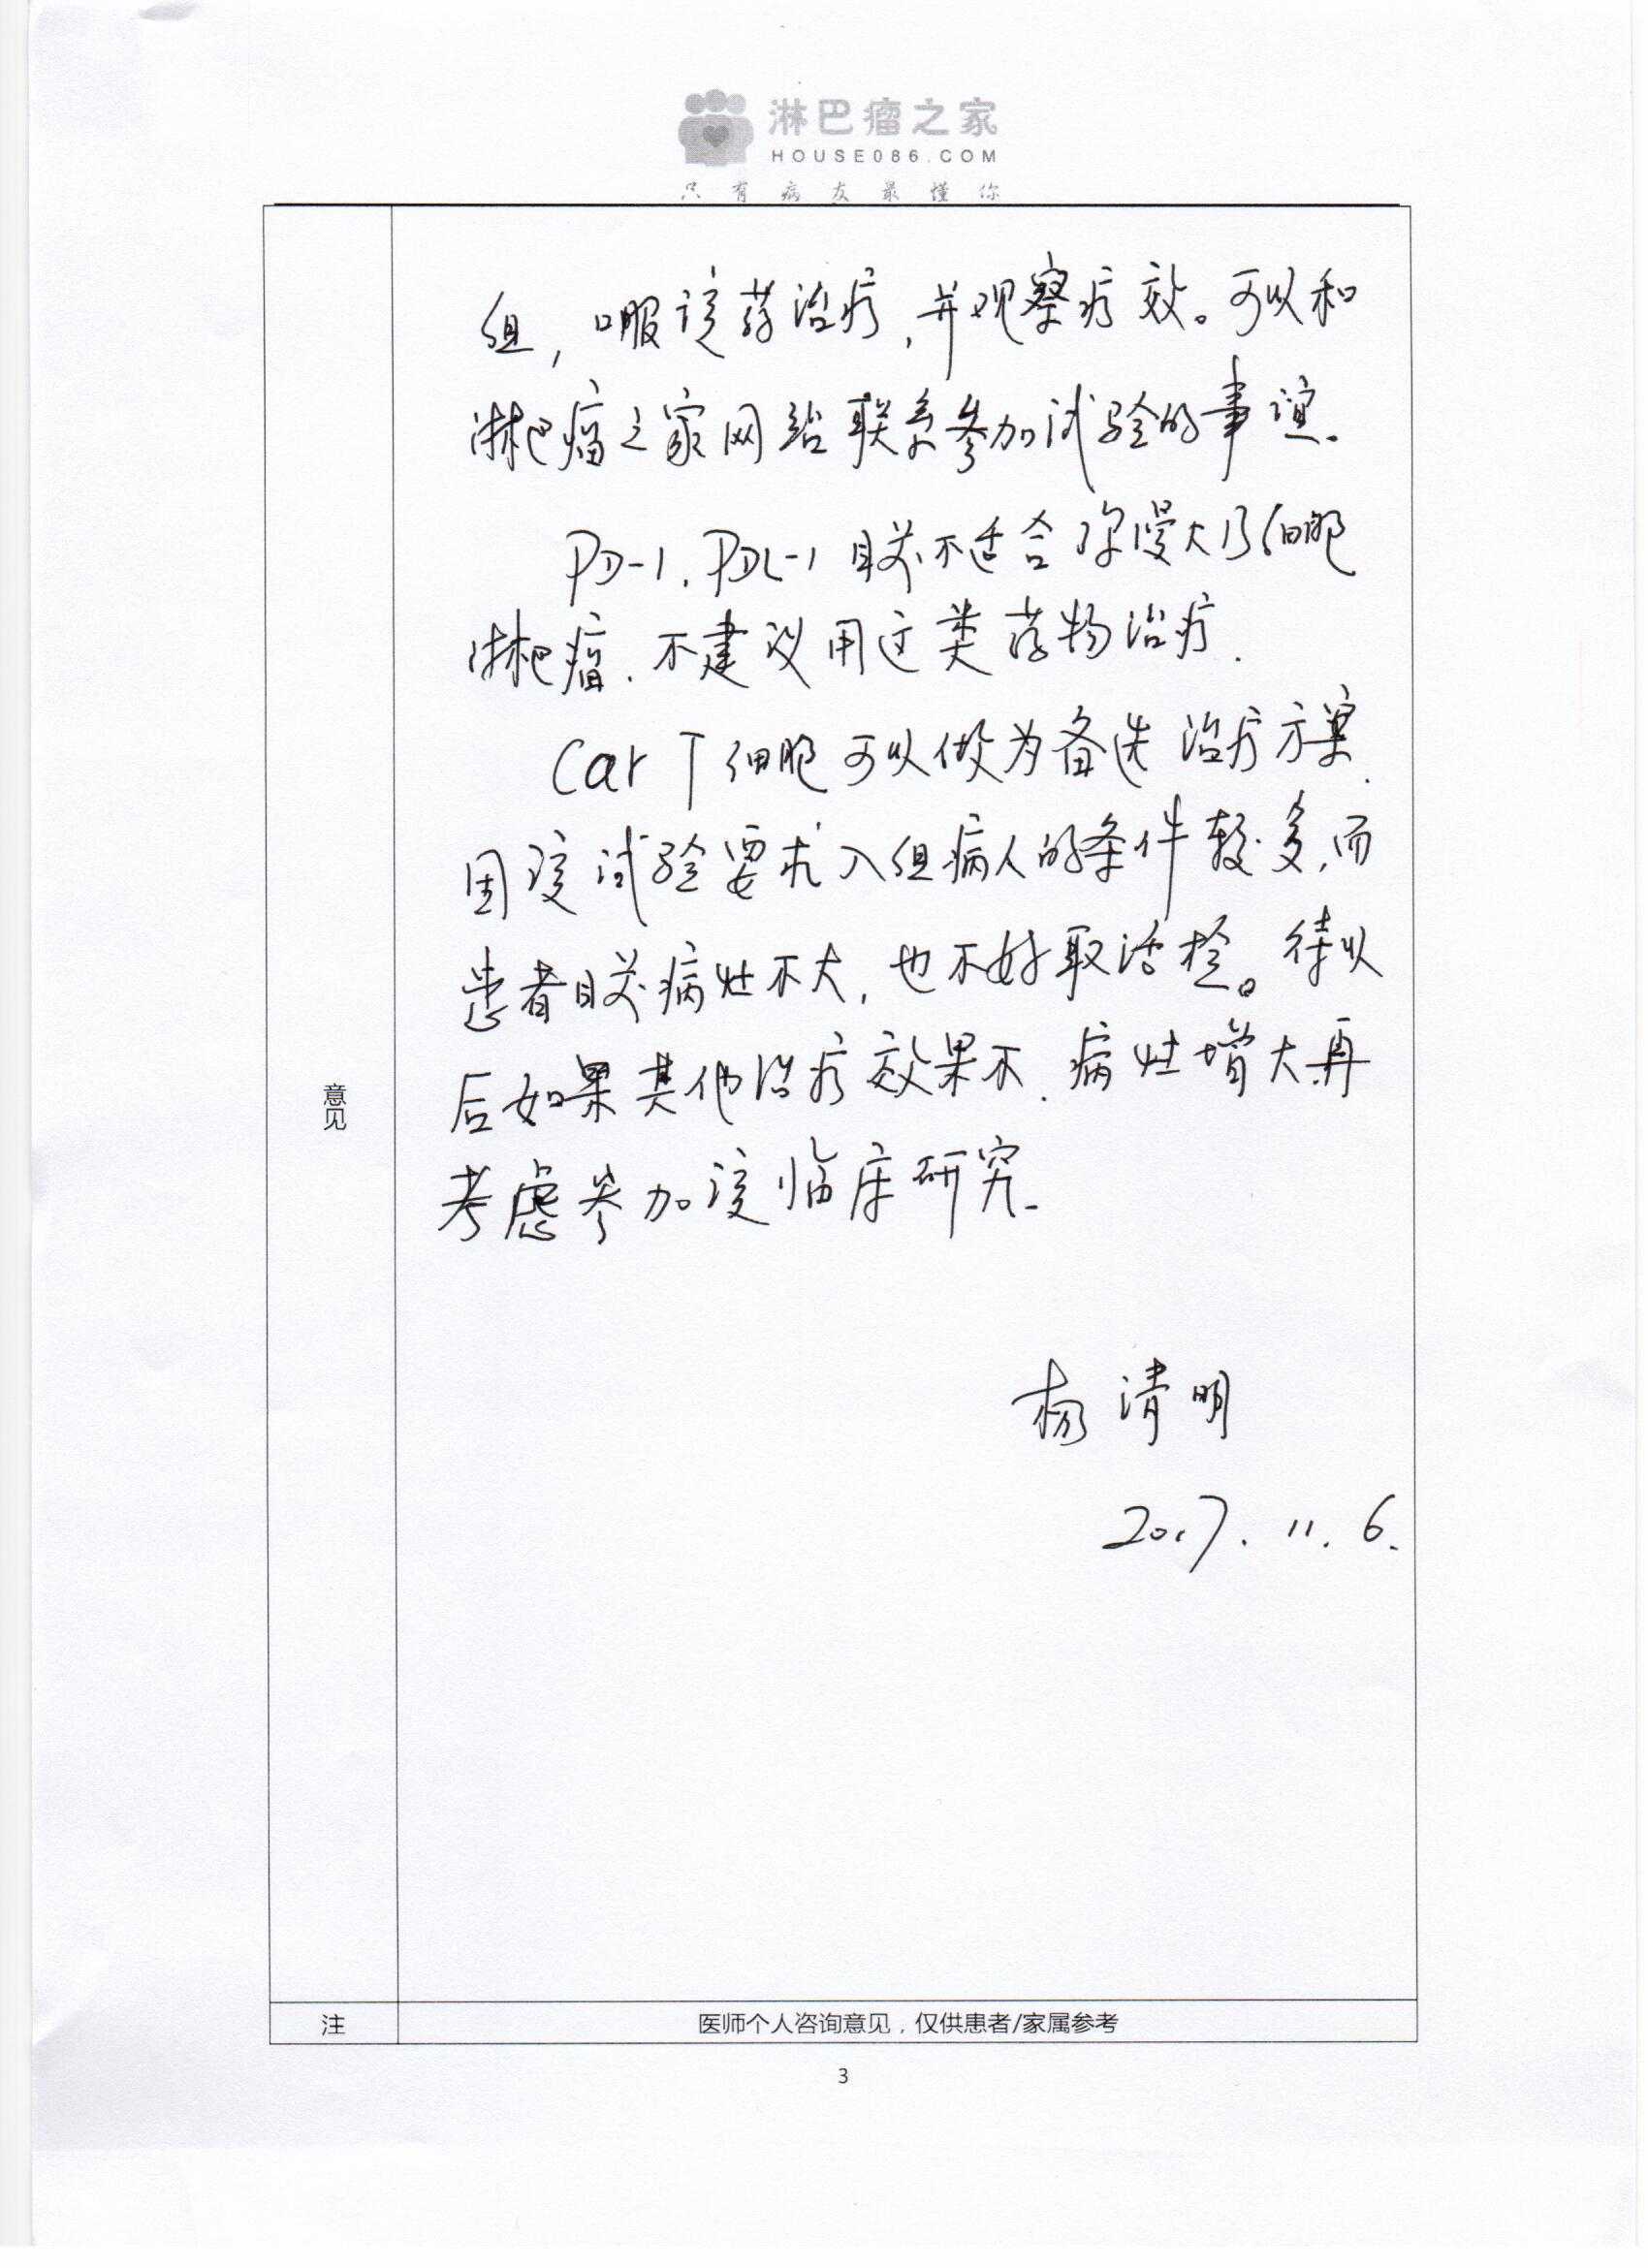 淋巴瘤之家
HOUSE086.COM
只有病友最懂你
组，口服该药治疗，并观察疗效。可以和
淋巴瘤之家网站联系参加试验的事谊.
PD-1.PDL-1目前不适合弥漫大B细胞
淋巴瘤.不建议用这类药物治疗.
Car T细胞可以做为备选治疗方案.
因该试验要求入组病人的条件较多,而
患者目前病灶不大,也不好取活检。待以
后如果其他治疗效果不.病灶增大再
考虑参加该临床研究.
意见
杨清明
2017.11.6.
注 医师个人咨询意见，仅供患者/家属参考
3